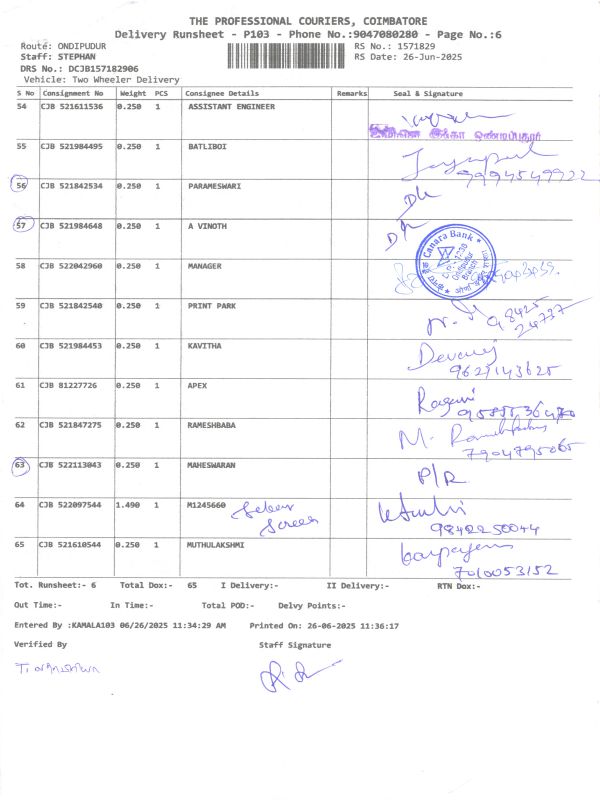 THE PROFESSIONAL COURIERS, COIMBATORE
Delivery Runsheet - P103 - Phone No.:9047080280 - Page No.:6
Route: ONDIPUDUR RS No.: 1571829
Staff: STEPHAN RS Date: 26-Jun-2025
DRS No.: DCJB157182906
Vehicle: Two Wheeler Delivery
S No Consignment No Weight PCS Consignee Details Remarks Seal & Signature
54 CJB 521611536 0.250 1 ASSISTANT ENGINEER
55 CJB 521984495 0.250 1 BATLIBOI
9994549922
56 CJB 521842534 0.250 1 PARAMESWARI
57 CJB 521984648 0.250 1 A VINOTH
Canara Bank
Ondipudur
Branch
58 CJB 522042960 0.250 1 MANAGER
59 CJB 521842540 0.250 1 PRINT PARK
98425
24737
60 CJB 521984453 0.250 1 KAVITHA Devaraj
9629143625
61 CJB 81227726 0.250 1 APEX Ragavi
62 CJB 521847275 0.250 1 RAMESHBABA M. Rameshbabu
7904795065
63 CJB 522113043 0.250 1 MAHESWARAN P/R
64 CJB 522097544 1.490 1 M1245660
9842250044
65 CJB 521610544 0.250 1 MUTHULAKSHMI
7010053152
Tot. Runsheet:- 6 Total Dox:- 65 I Delivery:- II Delivery:- RTN Dox:-
Out Time:- In Time:- Total POD:- Delvy Points:-
Entered By :KAMALA103 06/26/2025 11:34:29 AM Printed On: 26-06-2025 11:36:17
Verified By Staff Signature